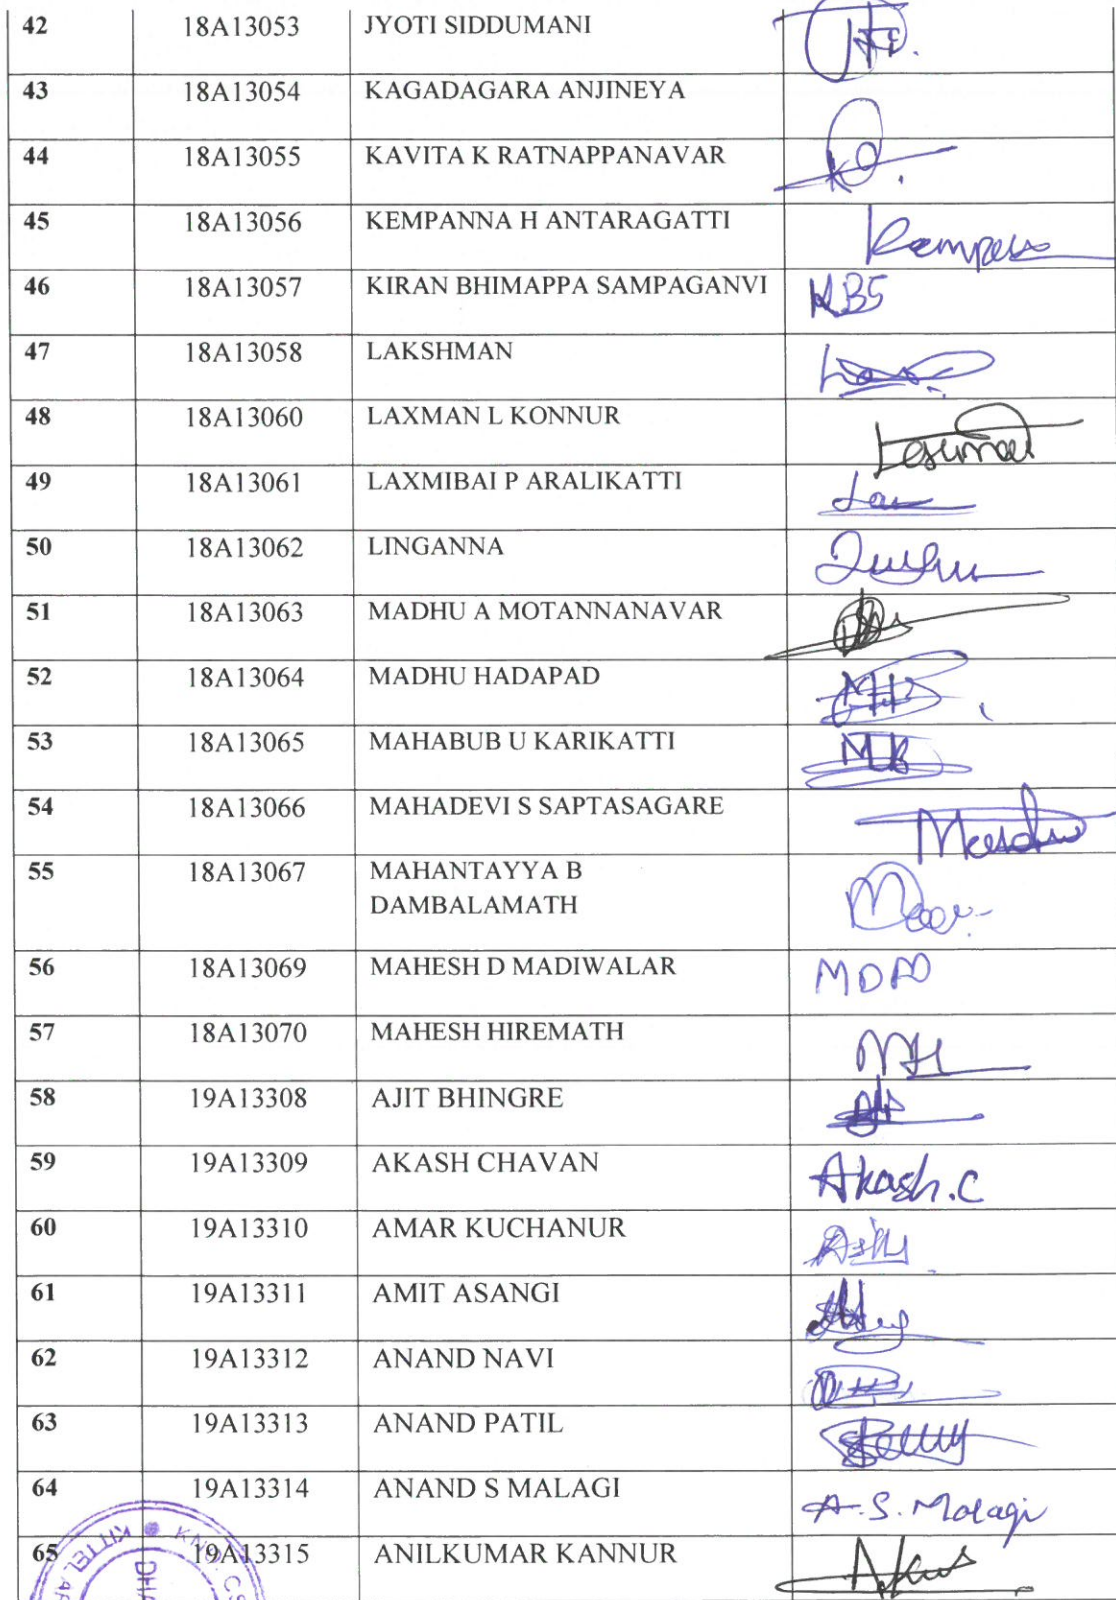 42 18A13053 JYOTI SIDDUMANI
43 18A13054 KAGADAGARA ANJINEYA
44 18A13055 KAVITA K RATNAPPANAVAR
45 18A13056 KEMPANNA H ANTARAGATTI
46 18A13057 KIRAN BHIMAPPA SAMPAGANVI KBS
47 18A13058 LAKSHMAN
48 18A13060 LAXMAN L KONNUR
49 18A13061 LAXMIBAI P ARALIKATTI
50 18A13062 LINGANNA
51 18A13063 MADHU A MOTANNANAVAR
52 18A13064 MADHU HADAPAD
53 18A13065 MAHABUB U KARIKATTI
54 18A13066 MAHADEVI S SAPTASAGARE
55 18A13067 MAHANTAYYA B
DAMBALAMATH
56 18A13069 MAHESH D MADIWALAR MDM
57 18A13070 MAHESH HIREMATH MH
58 19A13308 AJIT BHINGRE
59 19A13309 AKASH CHAVAN Akash.C
60 19A13310 AMAR KUCHANUR
61 19A13311 AMIT ASANGI
62 19A13312 ANAND NAVI
63 19A13313 ANAND PATIL
64 19A13314 ANAND S MALAGI A.S. Malagi
65 19A13315 ANILKUMAR KANNUR